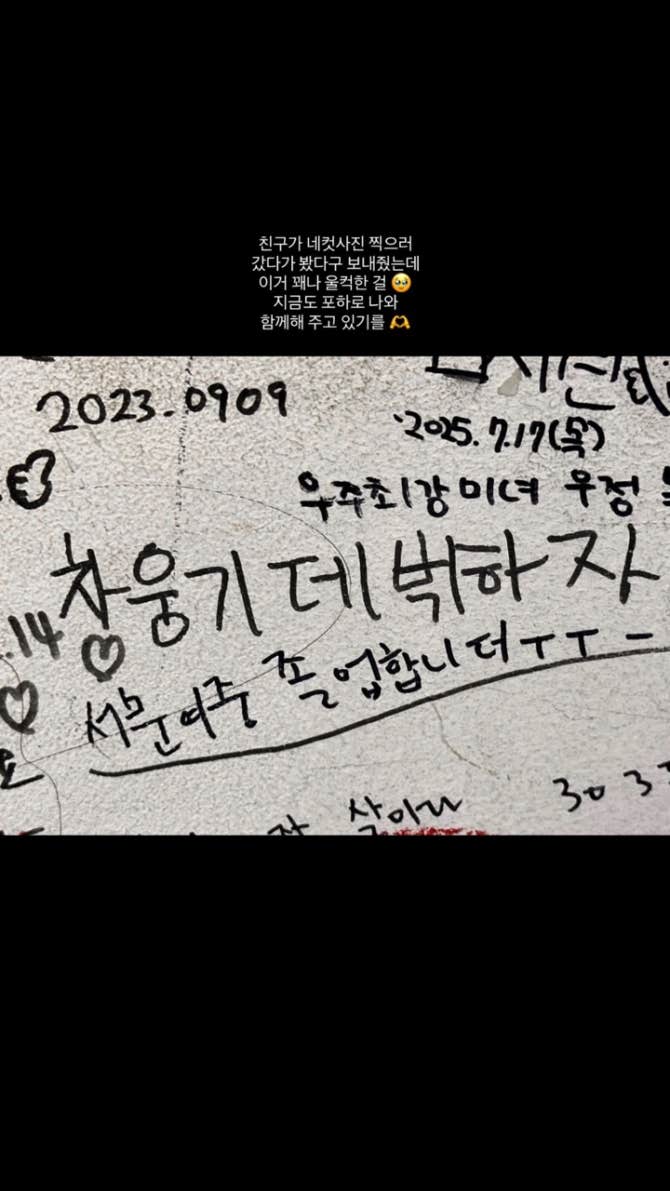 친구가 네컷사진 찍으러
갔다가 봤다구 보내줬는데
이거 꽤나 울컥한 걸 🥹
지금도 포하로 나와
함께해 주고 있기를 🫶
2023.0909
2025.7.17(목)
우주최강미녀 우정
창웅기 데뷔하자
.14
서문여중 졸업합니더ㅜㅜ
303